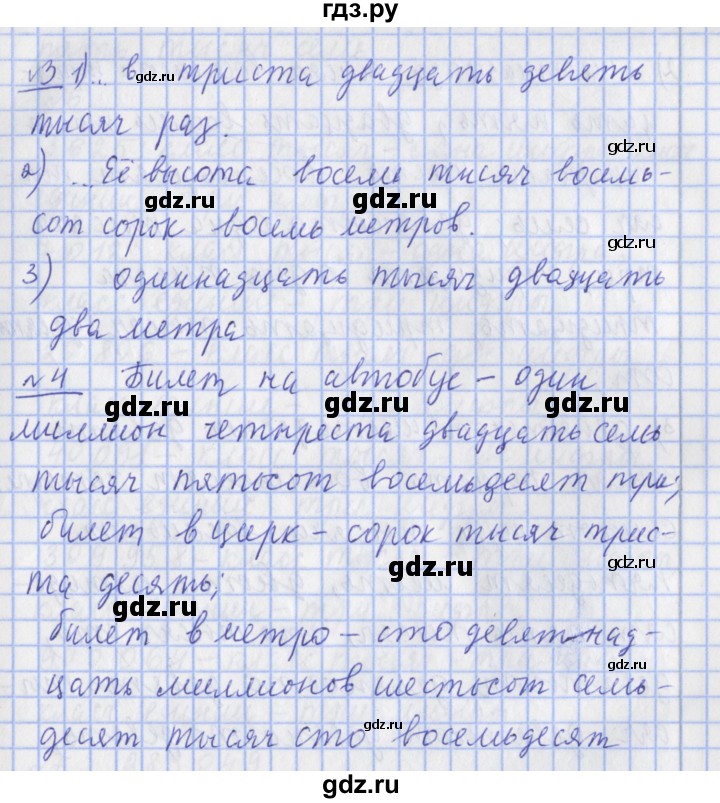 гдз.ру
№3 1)... в триста двадцать девять
тысяч раз.
2) ... Её высота восемь тысяч восемь-
сот сорок восемь метров.
3) одиннадцать тысяч двадцать
два метра
№4 Билет на автобус – один
миллион четыреста двадцать семь
тысяч пятьсот восемьдесят три;
билет в цирк – сорок тысяч трис-
та десять;
билет в метро – сто девятнад-
цать миллионов шестьсот семь-
десят тысяч сто восемьдесят
gdz.ru
gdz.ru
gdz.ru
gdz.ru
gdz.ru
gdz.ru
gdz.ru
gdz.ru
gdz.ru
gdz.ru
gdz.ru
gdz.ru
gdz.ru
gdz.ru